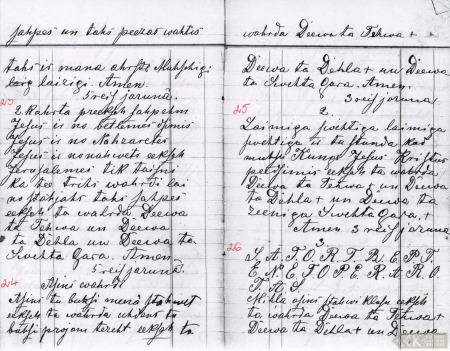 sahpes un tahs peezas wahtis
tahs ir mana ahrste Muhschigi
laig laizigi. Amen.
3 reis jaruna.
23
2. Kahrta preeksch sahpehm
Jesus is no betlemes dsimis
Jesus is no Nahzaretes
Jesus is nonahwets eeksch
Jerusalemes tik taisni
ka tee trihs wahrdi lai
no stahjahs tahs sahpes
eeksch ta wahrda Deewa
ta Tehwa un Deewa
ta Dehla un Deewa ta
Swehta Gara. Amen
3 reis jaruna.
24
Asins wahrdi
Asins tu buhsi mana stahwet
eeksch ta wahrda
buhsi eeksch ta
wahrda Deewa ta Tehwa +
Deewa ta Dehla + un Deewa
ta Swehta Gara. Amen.
3 reis jaruna
25
2.
Laimiga swehtiga laimiga
swehtiga ir ta stunda kad
muhsu Kungs Jesus Kristus
peedsimis eeksch ta wahrda
Deewa ta Tehwa + un Deewa
ta Dehla + un Deewa ta
zeeniga Swehta Gara. +
Amen 3 reis jaruna
26
3.
S. A. T. O. R. T. R. E. P. T.
E. N. E. T. O P E. R. A. R. O.
T. A. S.
asins stahwi klusu eeksch
ta wahrda Deewa ta Tehwa +
Deewa ta Dehla + un Deewa